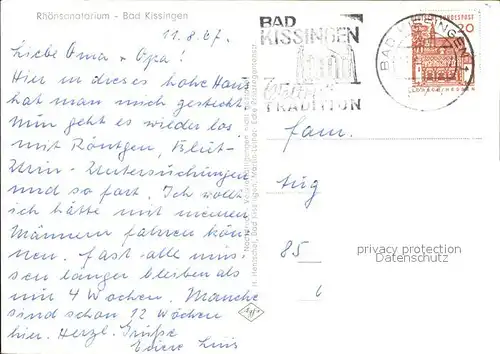 Rhönsanatorium - Bad Kissingen
11.8.67.
Liebe Oma + Opa!
Hier in dieses hohe Haus
hat man mich gesteckt.
Nun geht es wieder los
mit Röntgen, Blut-
Urin-Untersuchungen
und so fort. Ich wollt
ich hätte mit meinen
Männern fahren kön-
nen. Fast alle müs-
sen länger bleiben als
nur 4 Wochen. Manche
sind schon 12 Wochen
hier. Herzl. Grüße
BAD
KISSINGEN
TRADITION
BAD KISSINGEN
DEUTSCHE BUNDESPOST
20
LORSCH/HESSEN
Fam.
85
6
privacy protection
Datenschutz